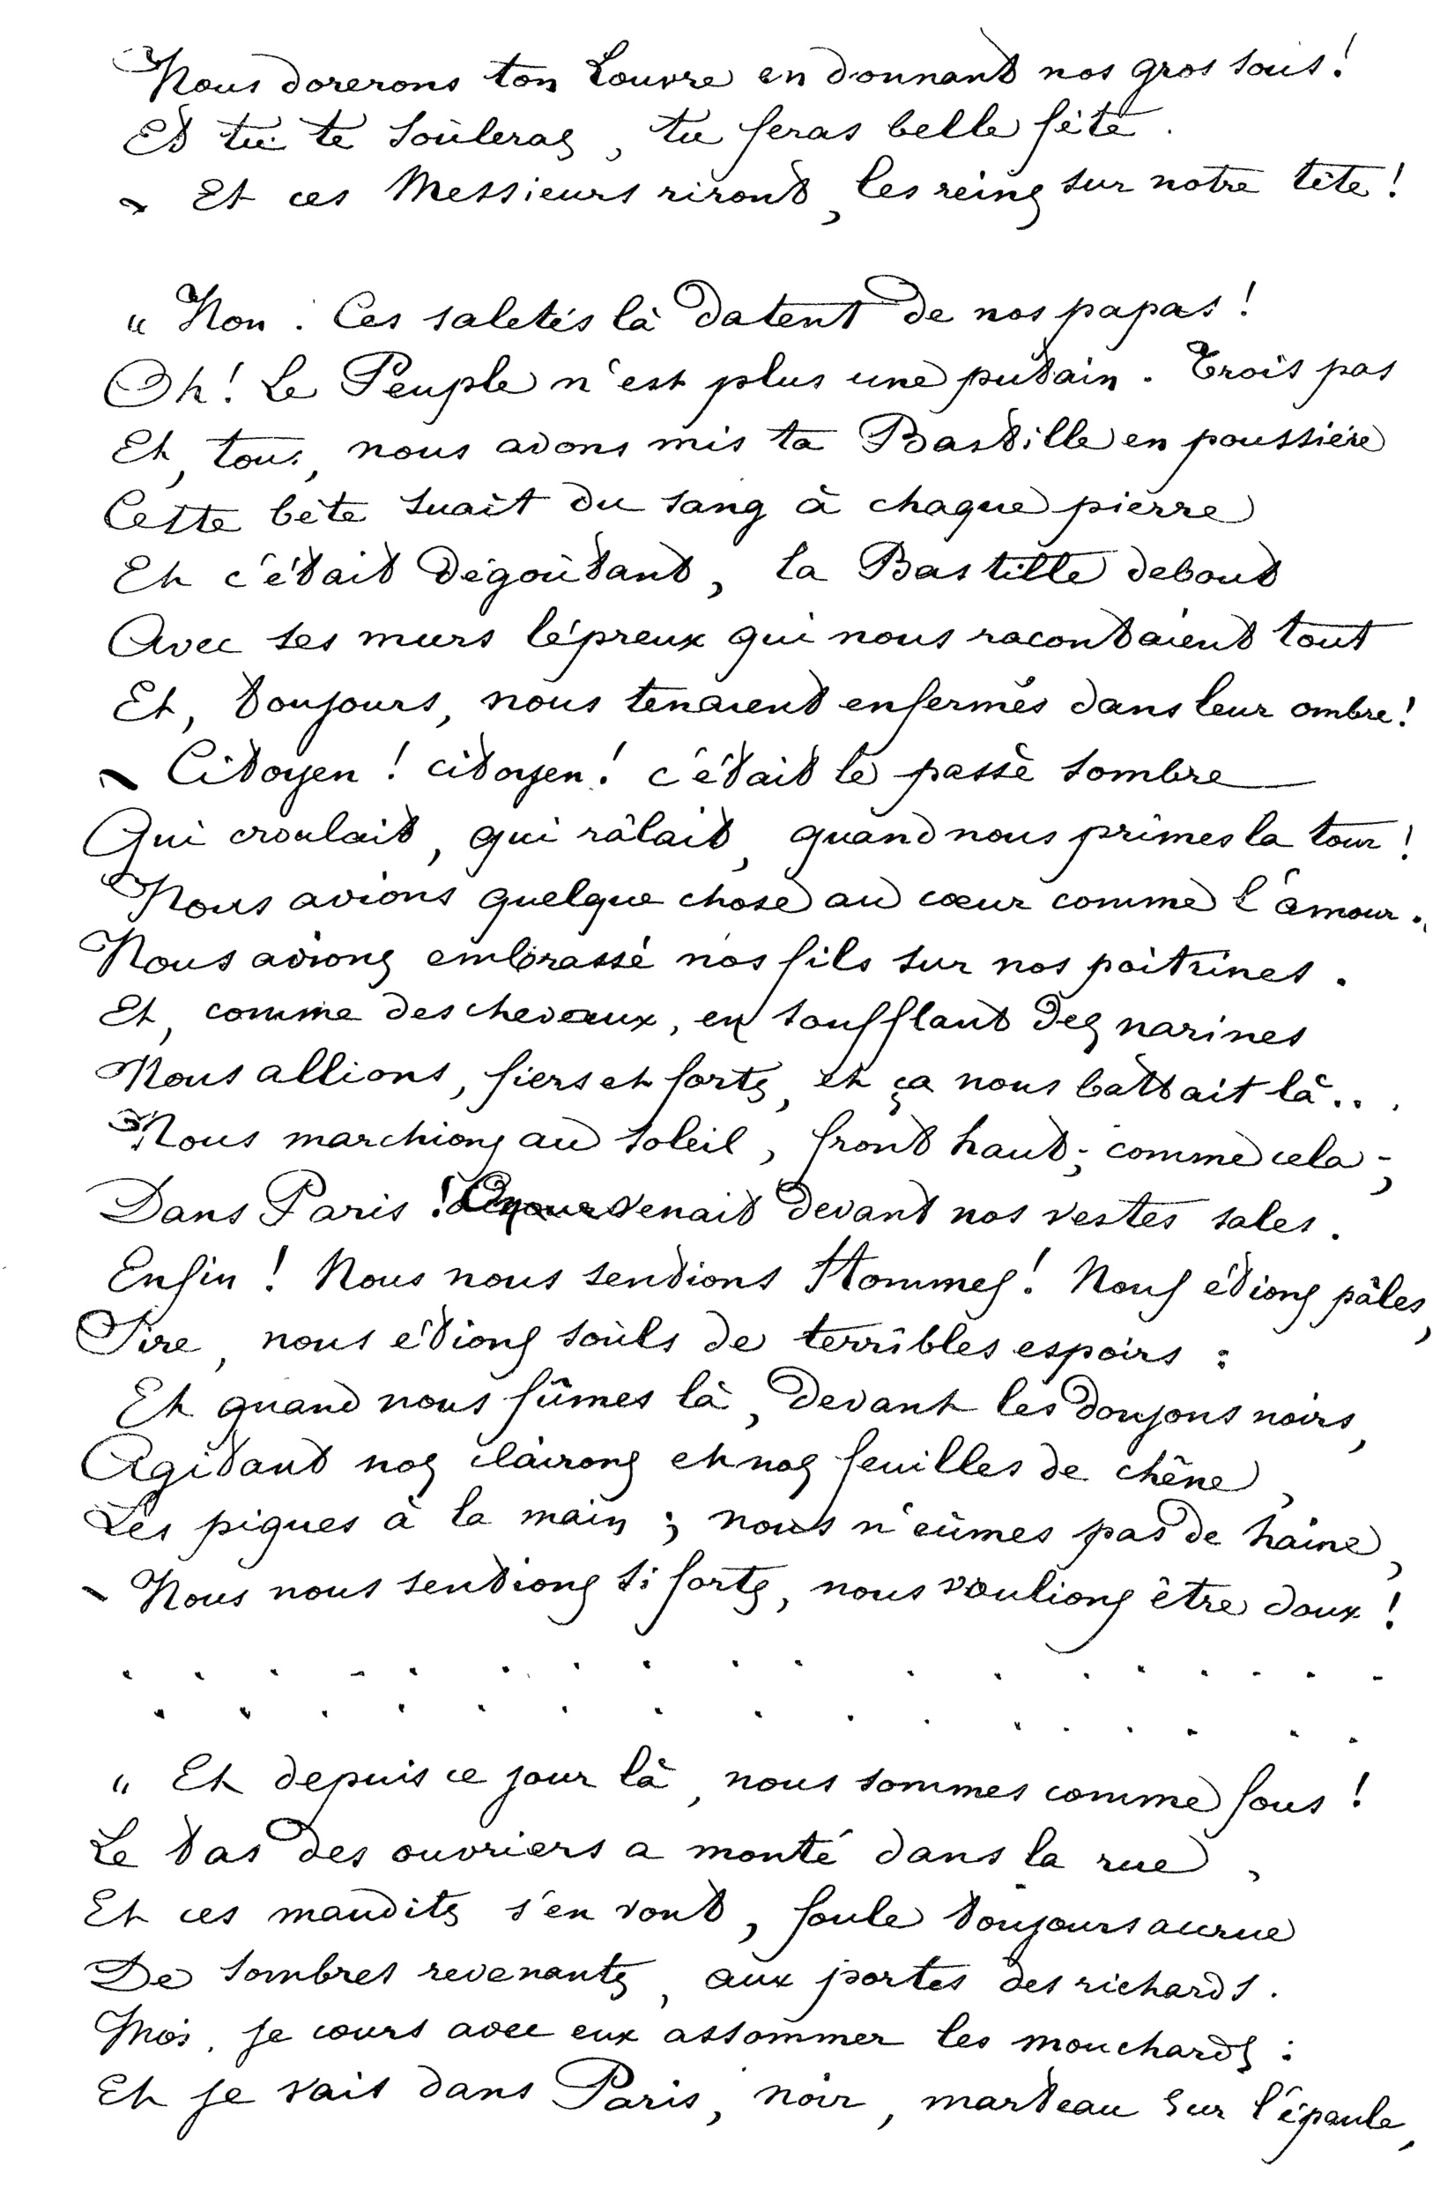 Nous dorerons ton Louvre en donnant nos gros sous!
Et tu te soûleras, tu feras belle fête.
- Et ces Messieurs riront, les reins sur notre tête!
« Non. Ces saletés là datent de nos papas!
Oh! Le Peuple n'est plus une putain. Trois pas
Et, tous, nous avons mis ta Bastille en poussière
Cette bête suait du sang à chaque pierre
Et c'était dégoûtant, la Bastille debout
Avec ses murs lépreux qui nous racontaient tout
Et, toujours, nous tenaient enfermés dans leur ombre!
- Citoyen! citoyen! c'était le passé sombre
Qui croulait, qui râlait, quand nous prîmes la tour!
Nous avions quelque chose au cœur comme l'amour.
Nous avions embrassé nos fils sur nos poitrines.
Et, comme des chevaux, en soufflant des narines
Nous allions, fiers et forts, et ça nous battait là...
Nous marchions au soleil, front haut; comme cela -,
Dans Paris! On venait devant nos vestes sales.
Enfin! Nous nous sentions Hommes! Nous étions pâles,
Sire, nous étions soûls de terribles espoirs:
Et quand nous fûmes là, devant les donjons noirs,
Agitant nos clairons et nos feuilles de chêne,
Les piques à la main; nous n'eûmes pas de haine,
- Nous nous sentions si forts, nous voulions être doux!
. . . . . . . . . . . . . . . . . .
. . . . . . . . . . . . . . . .
« Et depuis ce jour là, nous sommes comme fous!
Le tas des ouvriers a monté dans la rue,
Et ces maudits s'en vont, foule toujours accrue
De sombres revenants, aux portes des richards.
Moi, je cours avec eux assommer les mouchards:
Et je vais dans Paris, noir, marteau sur l'épaule,